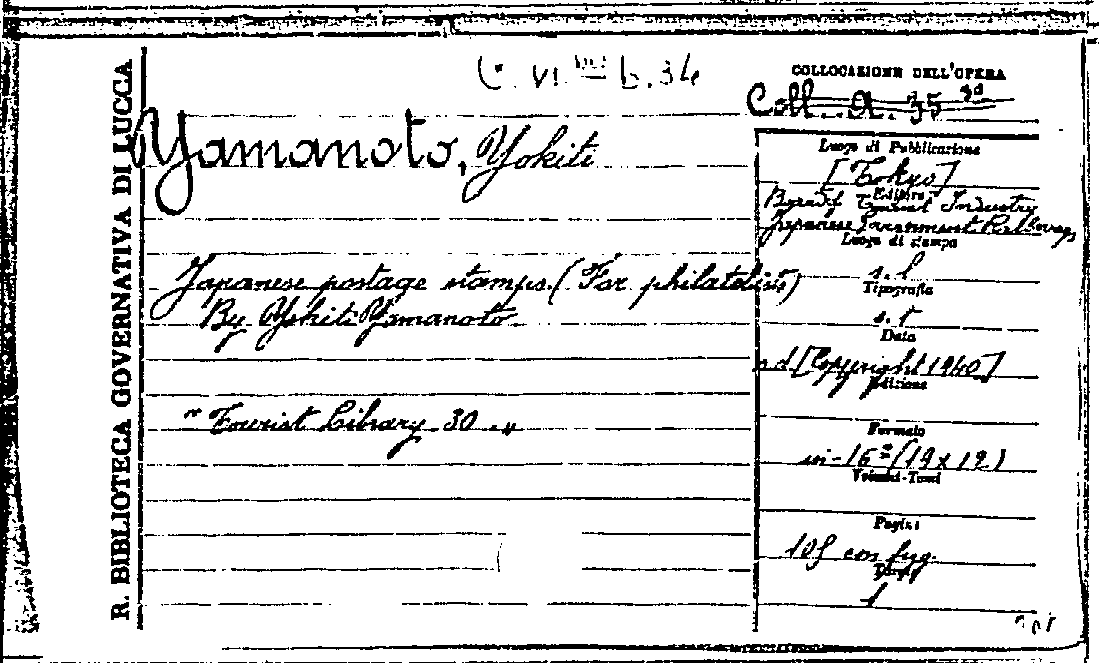 R. BIBLIOTECA GOVERNATIVA DI LUCCA
C. VI. b. 34
COLLOCAZIONE DELL'OPERA
Coll. A. 35
Yamanoto, Yokiti
Japanese postage stamps. (For philatelists)
By Yokiti Yamanoto
" Tourist Library 30. "
Luogo di Pubblicazione
[Tokyo]
Editore
Board of Tourist Industry
Japanese Government Railways
Luogo di stampa
s. l
Tipografia
s. t
Data
n d [Copyright 1940]
Edizione
Formato
in-16° (19 x 12)
Volumi-Tomi
Pagine
con fig.
1